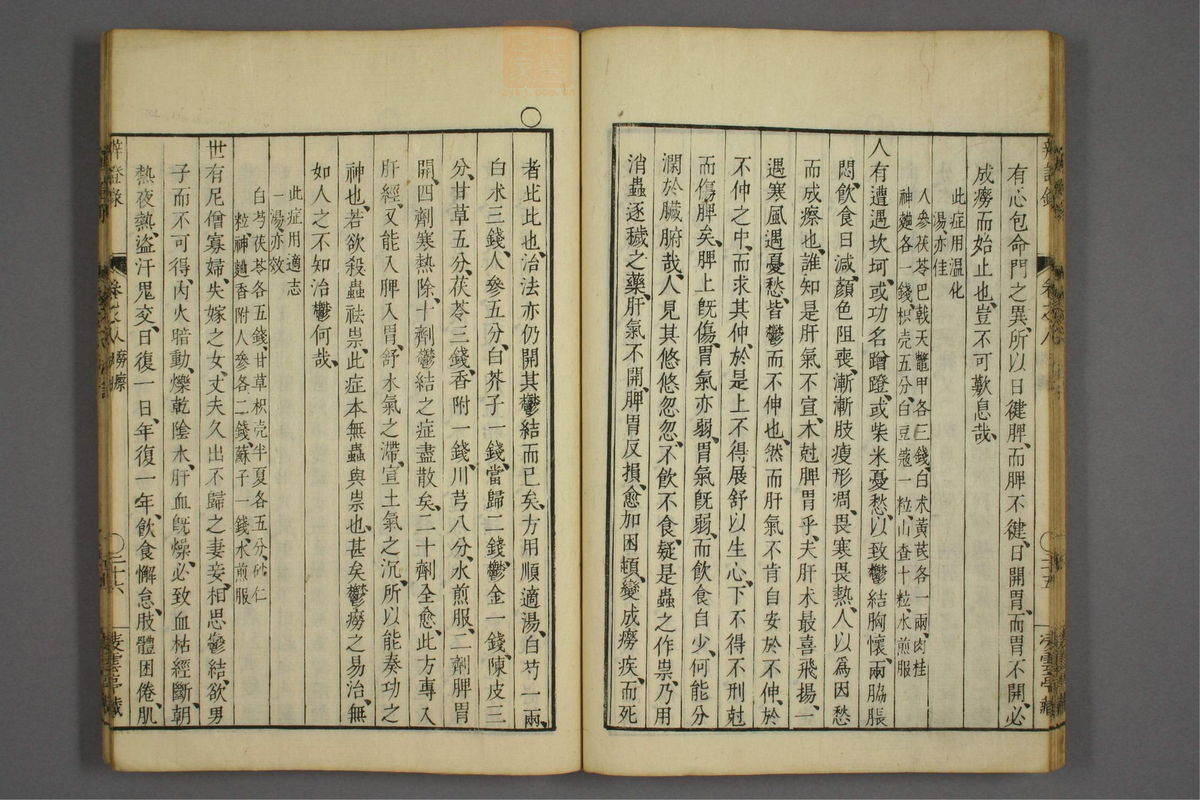 有心包命門之異、所以日健脾、而脾不健、日開胃、而胃不開、必
成癆而始止也、豈不可歎息哉、
此症用溫化
湯亦佳
人參茯苓巴戟天鱉甲各三錢、白朮黃芪各一兩、肉桂
神麯各一錢、枳壳五分、白豆蔻一粒、山查十粒、水煎服
人有遭遇坎坷、或功名蹭蹬、或柴米憂愁、以致鬱結胸懷、兩脇脹
悶、飲食日減、顏色阻喪、漸漸肢瘦形凋、畏寒畏熱、人以為因愁
而成瘵也、誰知是肝氣不宣、木尅脾胃乎、夫肝木最喜飛揚、一
遇寒風、遇憂愁、皆鬱而不伸也、然而肝氣不肯自安於不伸、於
不伸之中、而求其伸、於是上不得展舒以生心、下不得不刑尅
而傷脾矣、脾上旣傷、胃氣亦弱、胃氣旣弱、而飲食自少、何能分
潤於臟腑哉、人見其悠悠忽忽、不飲不食、疑是蟲之作祟、乃用
消蟲逐穢之藥、肝氣不開、脾胃反損、愈加困頓、變成癆疾、而死
者比比也、治法亦仍開其鬱結而已矣、方用順適湯、白芍一兩、
白朮三錢、人參五分、白芥子一錢、當歸二錢、鬱金一錢、陳皮三
分、甘草五分、茯苓三錢、香附一錢、川芎八分、水煎服、二劑脾胃
開、四劑寒熱除、十劑鬱結之症盡散矣、二十劑全愈、此方專入
肝經、又能入脾入胃、舒水氣之滯、宣土氣之沉、所以能奏功之
神也、若欲殺蟲祛祟、此症本無蟲與祟也、甚矣鬱癆之易治、無
如人之不知治鬱何哉、
此症用適志
一湯亦效
白芍茯苓各五錢、甘草枳壳半夏各五分、砂仁
粒神麯香附人參各二錢、蘇子一錢、水煎服
世有尼僧寡婦、失嫁之女、丈夫久出不歸之妻妾、相思鬱結、欲男
子而不可得、內火暗動、爍乾陰水、肝血旣燥、必致血枯經斷、朝
熱夜熱、盜汗鬼交、日復一日、年復一年、飲食懈怠、肢體困倦、肌
卷之八
癆瘵
二十六